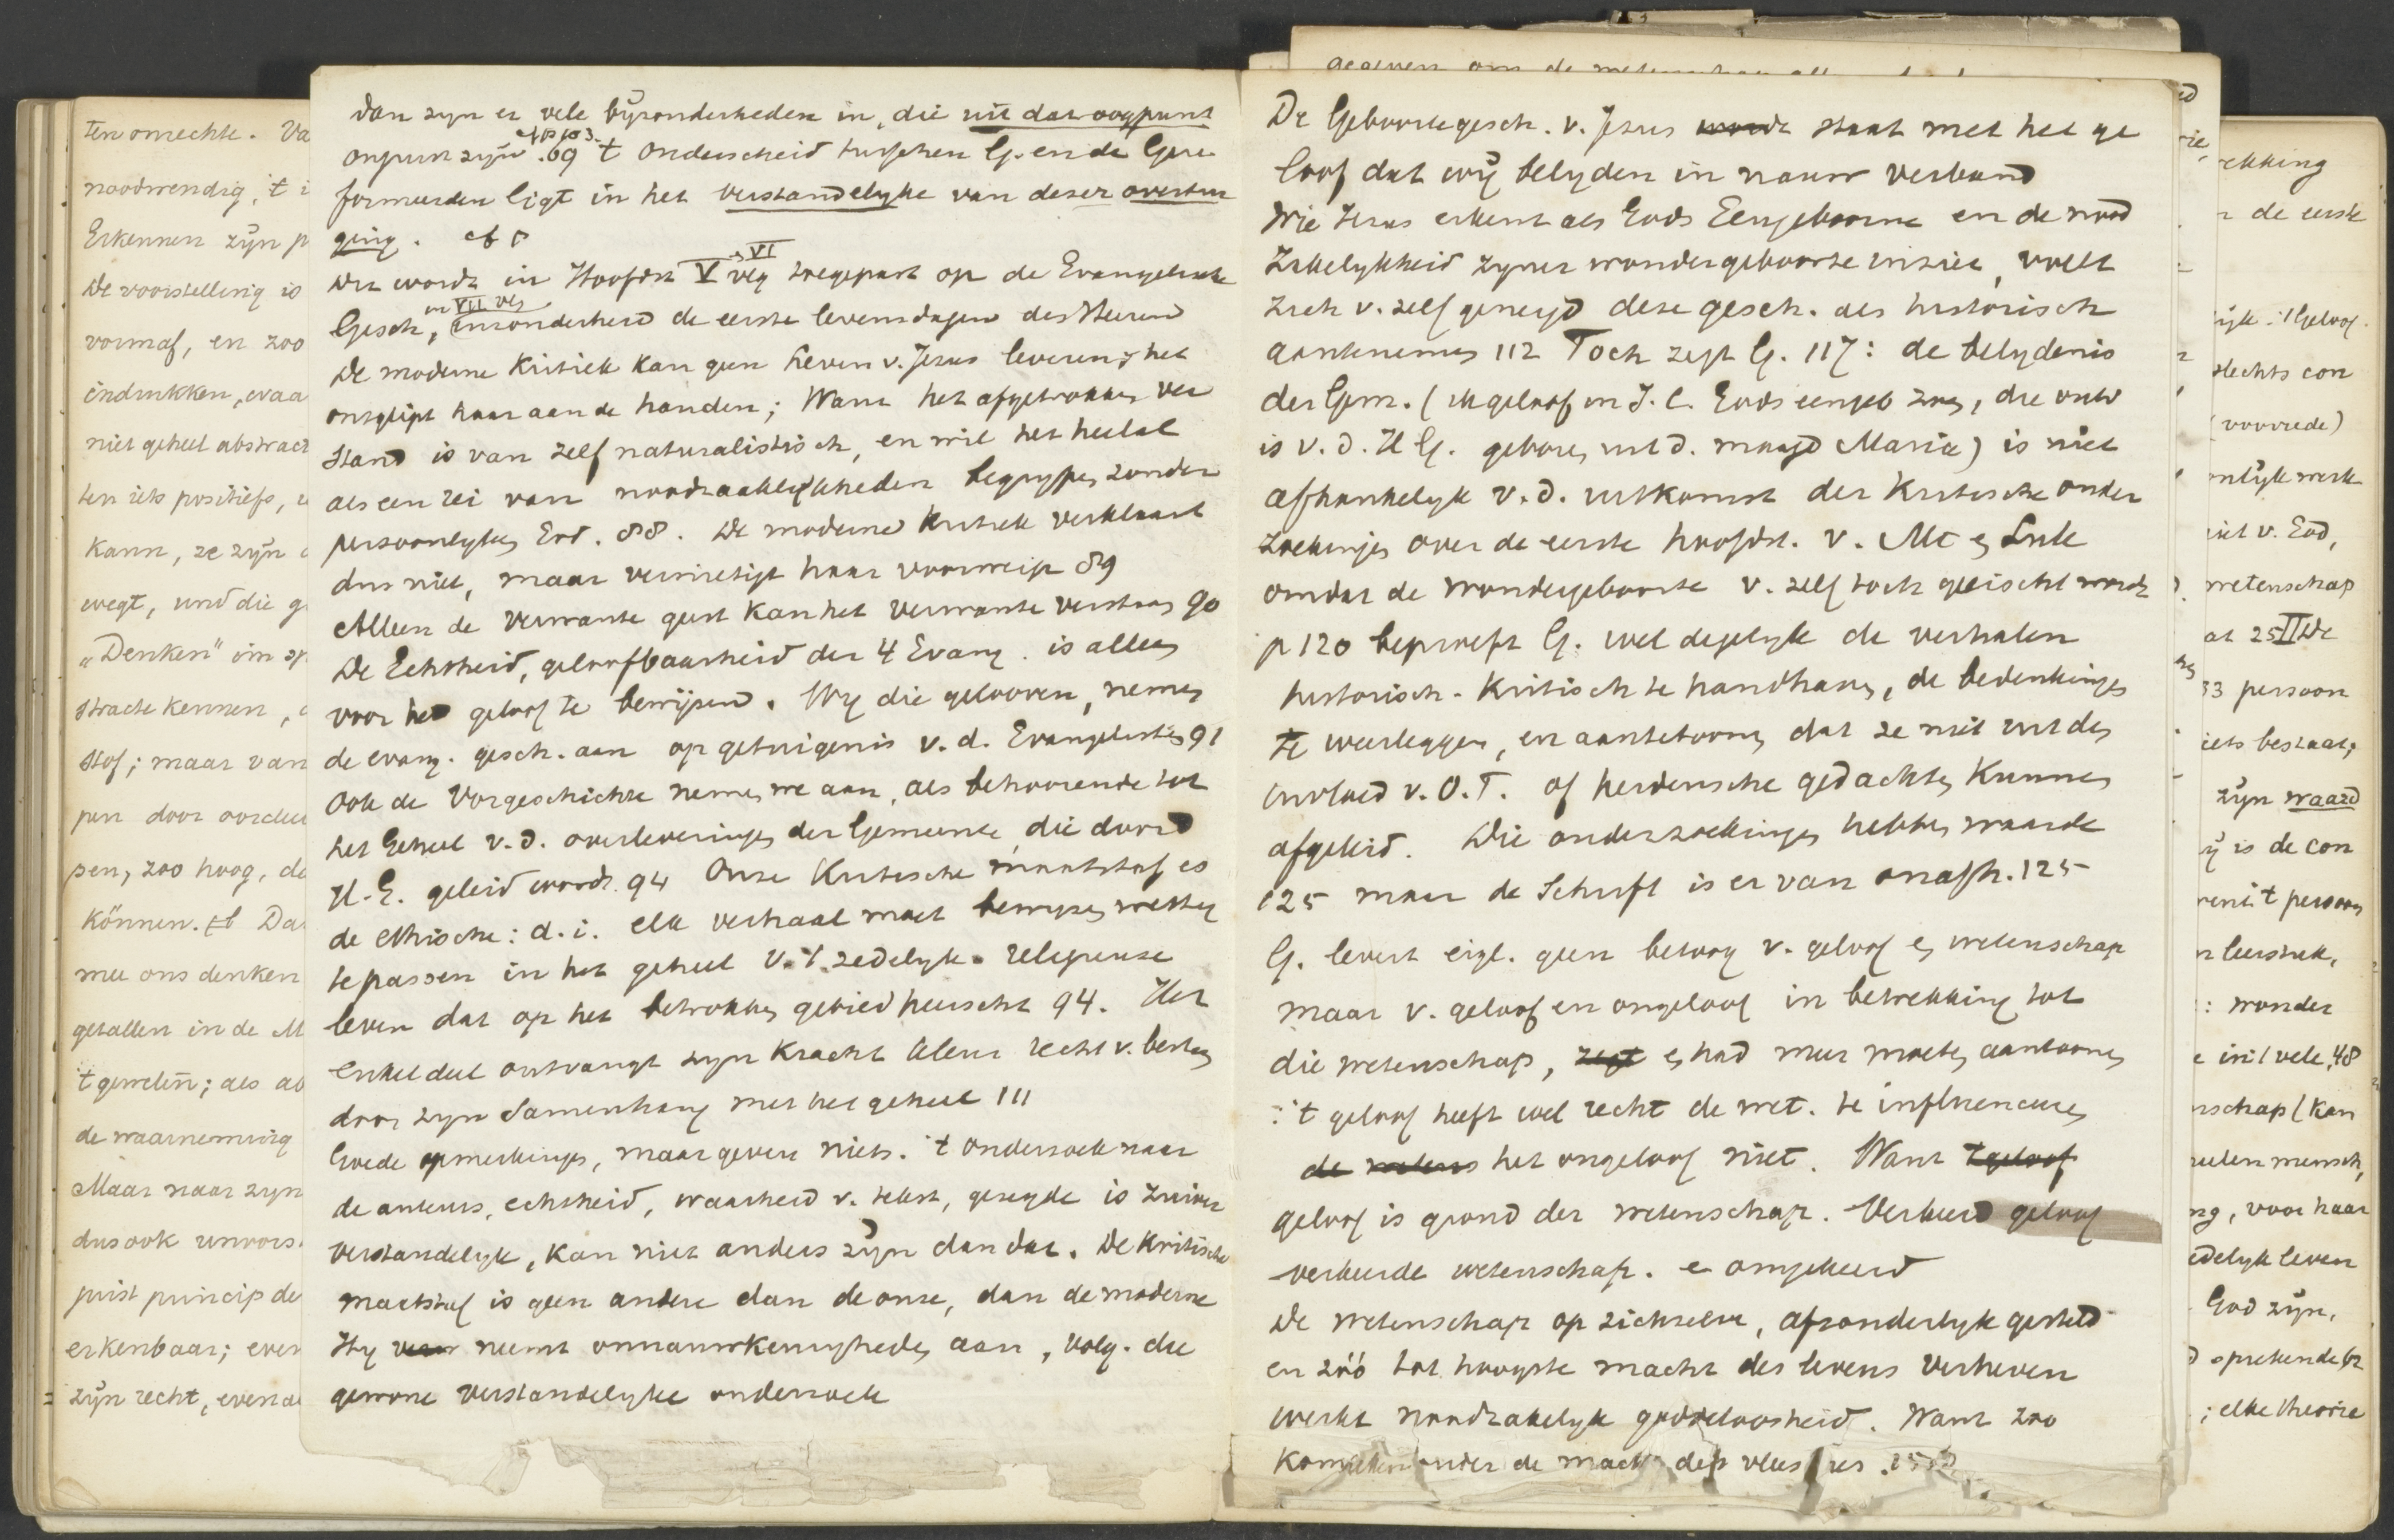 ten onrechte. Va
noodwendig, 't i
Erkennen zijn p
De voorstelling is
vormaf, en zoo
indrukken, waa
niet geheel abstract
ten iets positiefs, u
Kann, ze zijn
wegt, und die g
"Denken" im sp
stracte kennen,
stof; maar van
pen door oordeel
pen, zoo hoog, da
Können. Da
mee ons denken
getallen in de M
't geweten; als ab
de waarneming
Maar naar zyn
dus ook unvors
juist princip de
erkenbaar; even
zijn recht, even a
dan zyn er vele byzonderheden in, die uit dat oogpunt
onjuist zijn. 69 't onderscheid tusschen G. en de Gere
formeerden ligt in het verstandelyke van dezer overtui
ging. cf
Dit wordt in Hoofdst V vlg VI toegepast op de Evangelische
Gesch, en VII vlg inzonderheid de eerste levensdagen des Heeren
De moderne Kritiek kan geen Leven v. Jezus leveren, het
ontglipt haar aan de handen; Want het afgetrokken ver
stand is van zelf naturalistisch, en wil het heelal
als een rei van noodzaaklijkheden begrypen zonder
persoonlyken God. 88. De moderne kritiek verklaart
dus niet, maar vernietigt haar voorwerp 89
Alleen de verwante geest kan het verwante verstaan 90
De Echtheid, geloofbaarheid der 4 Evang. is alleen
voor het geloof te bewijzen. Wy die gelooven, nemen
de evang. gesch. aan op getuigenis v. d. Evangelisten 91
Ook de Vorgeschichte nemen we aan, als behoorende tot
het Geheel v. d. overleveringen der Gemeente, die door d
H. G. geleid wordt. 94 Onze Kritische maatstaf is
de ethische: d. i. elk verhaal moet bewyzen
te passen in het geheel v. 't zedelyk-religieuse
leven dat op het betrokken gebied heerscht 94. Het
enkel deel ontvangt zyn kracht recht v. bestaan
door zyn Samenhang met het geheel 111
Goede opmerkingen, maar geven niets. 't onderzoek naar
de auteurs, echtheid, waarheid v. tekst, gezegde is zuiver
verstandelyk, kan niet anders zijn dan dat. De Kritische
maatstaf is geen andere dan de onze, dan de moderne
Hy neemt onnauwkeurigheden aan, volg. die
gewone verstandelyke onderzoek
gegeven om de wetenschap
De Geboortegesch. v. Jezus wordt staat met het ge
loof dat wij belyden in nauw verband
Wie Jezus erkent als Gods Eengeboorne en de nood
zakelykheid zyner wondergeboorte inziet, voelt
zich v. zelf geneigd deze gesch. als historisch
aantenemen 112 Toch zegt G. 117: de belydenis
der Gem. (ik geloof in J. C. Gods eengeb zoon, die ontv
is v. d. H G. geboren uit d. maagd Maria) is niet
afhankelyk v. d. uitkomst der Kritische onder
zoekingen over de eerste hoofdst. v. Mt en Luk
omdat de wondergeboorte v. zelf toch geëischt wordt
p 120 beproeft G. wel degelyk de verhalen
historisch-kritisch te handhaven, de bedenkingen
te weerleggen, en aantetoonen dat ze niet uit den
invloed v. O.T. of heidensche gedachten kunnen
afgeleid. Die onderzoekingen hebben waarde
125 maar de Schrift is er van onafh. 125
G. levert eigl. geen betoog v. geloof en wetenschap
maar v. geloof en ongeloof in betrekking tot
die wetenschap, zegt en had meer moeten aantoonen
: 't geloof heeft wel recht de wet. te influenceeren
de wetens het ongeloof niet. Want 't geloof
geloof is grond der wetenschap. Verkeerd geloof
verkeerde wetenschap. e omgekeerd
De wetenschap op zichzelve, afzonderlyk gesteld
en zóó tot hoogste macht des levens verheven
werkt noodzakelyk goddeloosheid. Want zoo
komt onder de macht des vlees
rekking
de eerste
lijk: 't Geloof
slechts con
(voorrede)
niet v. God,
wetenschap
at 25 II De
33 persoon
iets bestaat,
zijn waard
is de con
't persoon
n leerstuk,
: wonder
in 't vele, 48
nschap (kan
eelen mensch,
ng, voor haar
edelyk leven
God zijn,
sprekende
; elke theorie